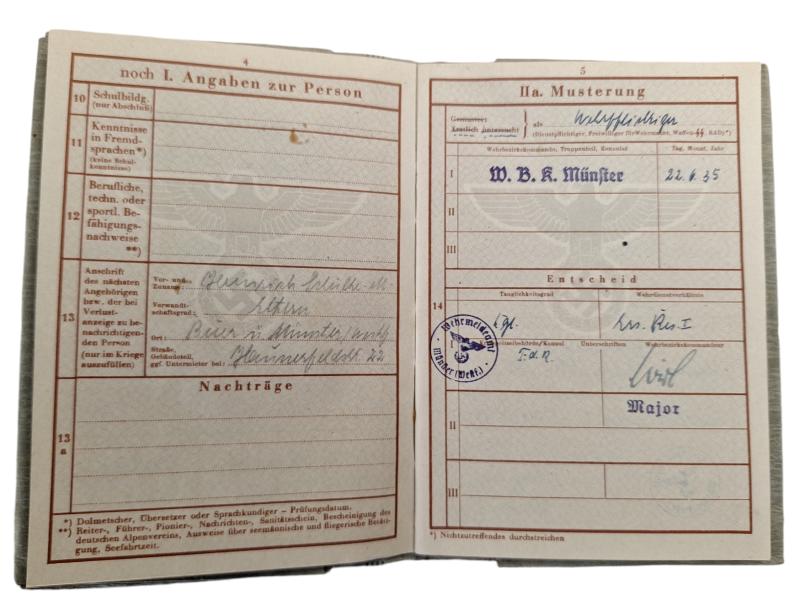 4
noch I. Angaben zur Person
10 Schulbildg. (nur Abschluß)
11 Kenntnisse in Fremdsprachen*) (keine Schulkenntnisse)
12 Berufliche, techn. oder sportl. Befähigungsnachweise **)
13 Anschrift des nächsten Angehörigen bzw. der bei Verlustanzeige zu benachrichtigenden Person (nur im Kriege auszufüllen)
Vor- und Zuname: Heinrich
Verwandtschaftsgrad: Eltern
Ort: Münster
Straße, Gebäudeteil, ggf. Untermieter bei: 22
Nachträge
13 a
*) Dolmetscher, Übersetzer oder Sprachkundiger – Prüfungsdatum.
**) Reiter-, Führer-, Pionier-, Nachrichten-, Sanitätsschein, Bescheinigung des
deutschen Alpenvereins, Ausweise über seemännische und fliegerische Betäti-
gung, Seefahrtzeit.
5
IIa. Musterung
Gemustert
als Wehrpflichtiger
(Dienstpflichtiger, Freiwilliger für Wehrmacht, Waffen-SS, RAD)*)
Wehrbezirkskommando, Truppenteil, Konsulat Tag, Monat, Jahr
I W. B. K. Münster 22.6.35
II
III
Entscheid
14
Tauglichkeitsgrad Wehrdienstverhältnis
I tgl. Ers. Res. I
Wehrmeldeamt
Münster (Westf.)
Unterschriften Wehrbezirkskommandeur
Major
II
III
*) Nichtzutreffendes durchstreichen